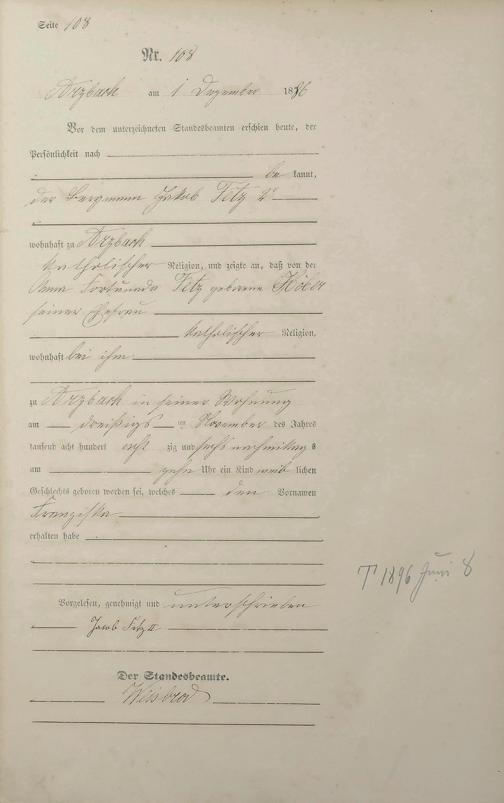 Seite 108
Nr. 108
Arzbach am 1 Dezember 1886
Vor dem unterzeichneten Standesbeamten erschien heute, der
Persönlichkeit nach
be kannt,
der Bergmann Jakob Fetz 2r
wohnhaft zu Arzbach
katholischer Religion, und zeigte an, daß von der
Anna Fortunda Fetz geborene
seiner Ehefrau
katholischer Religion,
wohnhaft bei ihm
zu Arzbach in seiner Wohnung
am dreißigs ten November des Jahres
tausend acht hundert acht zig und sechs nachmittag s
um zehn Uhr ein Kind weib lichen
Geschlechts geboren worden sei, welches den Vornamen
Franziska
erhalten habe
T 1896 Juni 8
Vorgelesen, genehmigt und unterschrieben
Jacob Fetz II
Der Standesbeamte.
Weisbrod